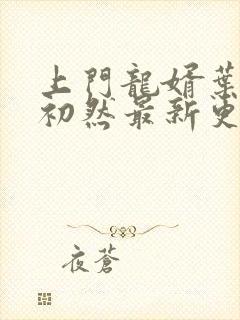 上門龍婿葉
初然最新更
夜蒼